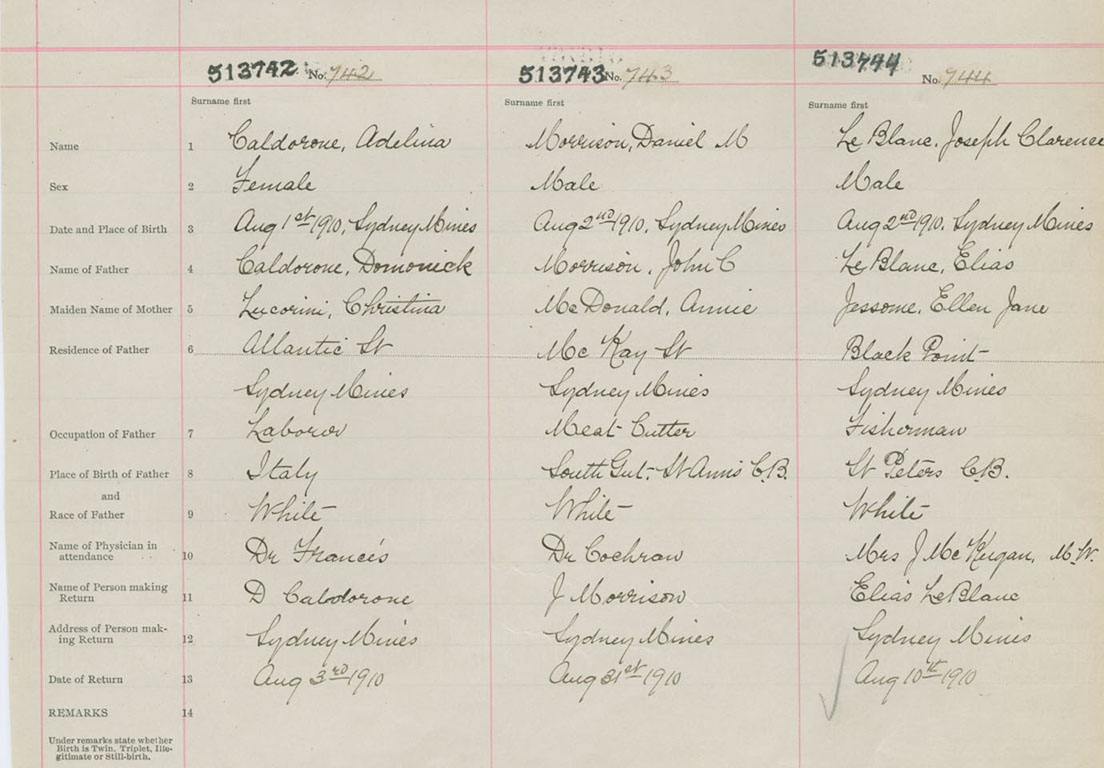 513742 No. 742 513743 No. 743 513744 No. 944
Surname first Surname first Surname first
Name 1 Caldorone, Adelina Morrison, Daniel M Le Blanc, Joseph Clarence
Sex 2 Female Male Male
Date and Place of Birth 3 Aug 1st 1910, Sydney Mines Aug 2nd 1910, Sydney Mines Aug 2nd 1910, Sydney Mines
Name of Father 4 Caldorone, Domonick Morrison, John C Le Blanc, Elias
Maiden Name of Mother 5 Lucorini, Christina McDonald, Annie Jessome, Ellen Jane
Residence of Father 6 Atlantic St McKay St Black Point
Sydney Mines Sydney Mines Sydney Mines
Occupation of Father 7 Laboror Meat Cutter Fisherman
Place of Birth of Father 8 Italy South Gut. St Anns C.B. St Peters C.B.
and
Race of Father 9 White White White
Name of Physician in
attendance 10 Dr Francis Dr Cochran Mrs J McKeigan, M.W.
Name of Person making
Return 11 D Calodorone J Morrison Elias LeBlanc
Address of Person mak-
ing Return 12 Sydney Mines Sydney Mines Sydney Mines
Date of Return 13 Aug 3rd 1910 Aug 31st 1910 Aug 10th 1910
REMARKS 14
Under remarks state whether
Birth is Twin, Triplet, Ille-
gitimate or Still-birth.